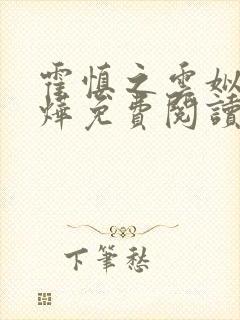 霍慎之雲姒
燁免費閱讀
下筆愁